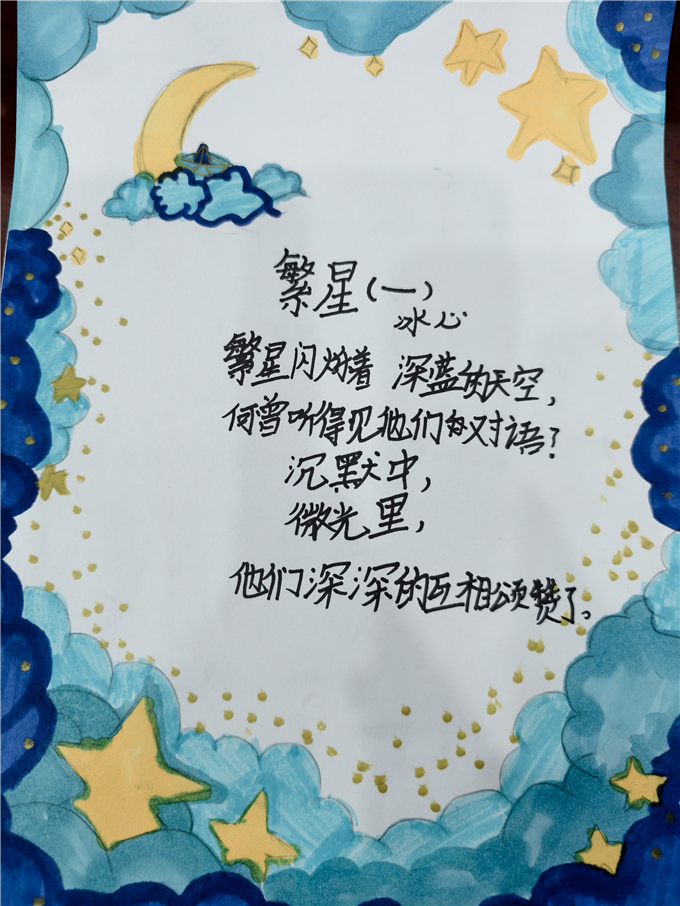 繁星（一）
冰心
繁星闪烁着 深蓝的天空，
何曾听得见他们的对语？
沉默中，
微光里，
他们深深的互相颂赞了。